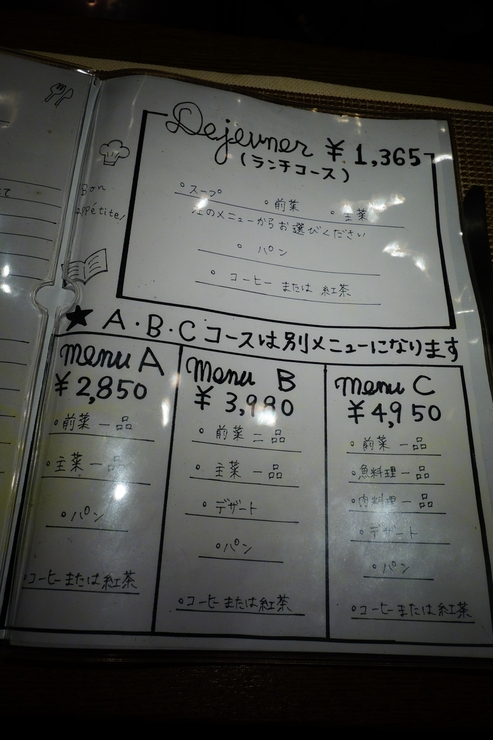 Dejeuner ¥1,365
(ランチコース)
Bon
appétite!
・スープ ・前菜 ・主菜
のメニューからお選びください
・パン
・コーヒー または 紅茶
★A・B・Cコースは別メニューになります
menu A
¥2,850
・前菜一品
・主菜一品
・パン
・コーヒーまたは紅茶
menu B
¥3,990
・前菜二品
・主菜一品
・デザート
・パン
・コーヒーまたは紅茶
menu C
¥4,950
・前菜一品
・魚料理一品
・肉料理一品
・デザート
・パン
・コーヒーまたは紅茶